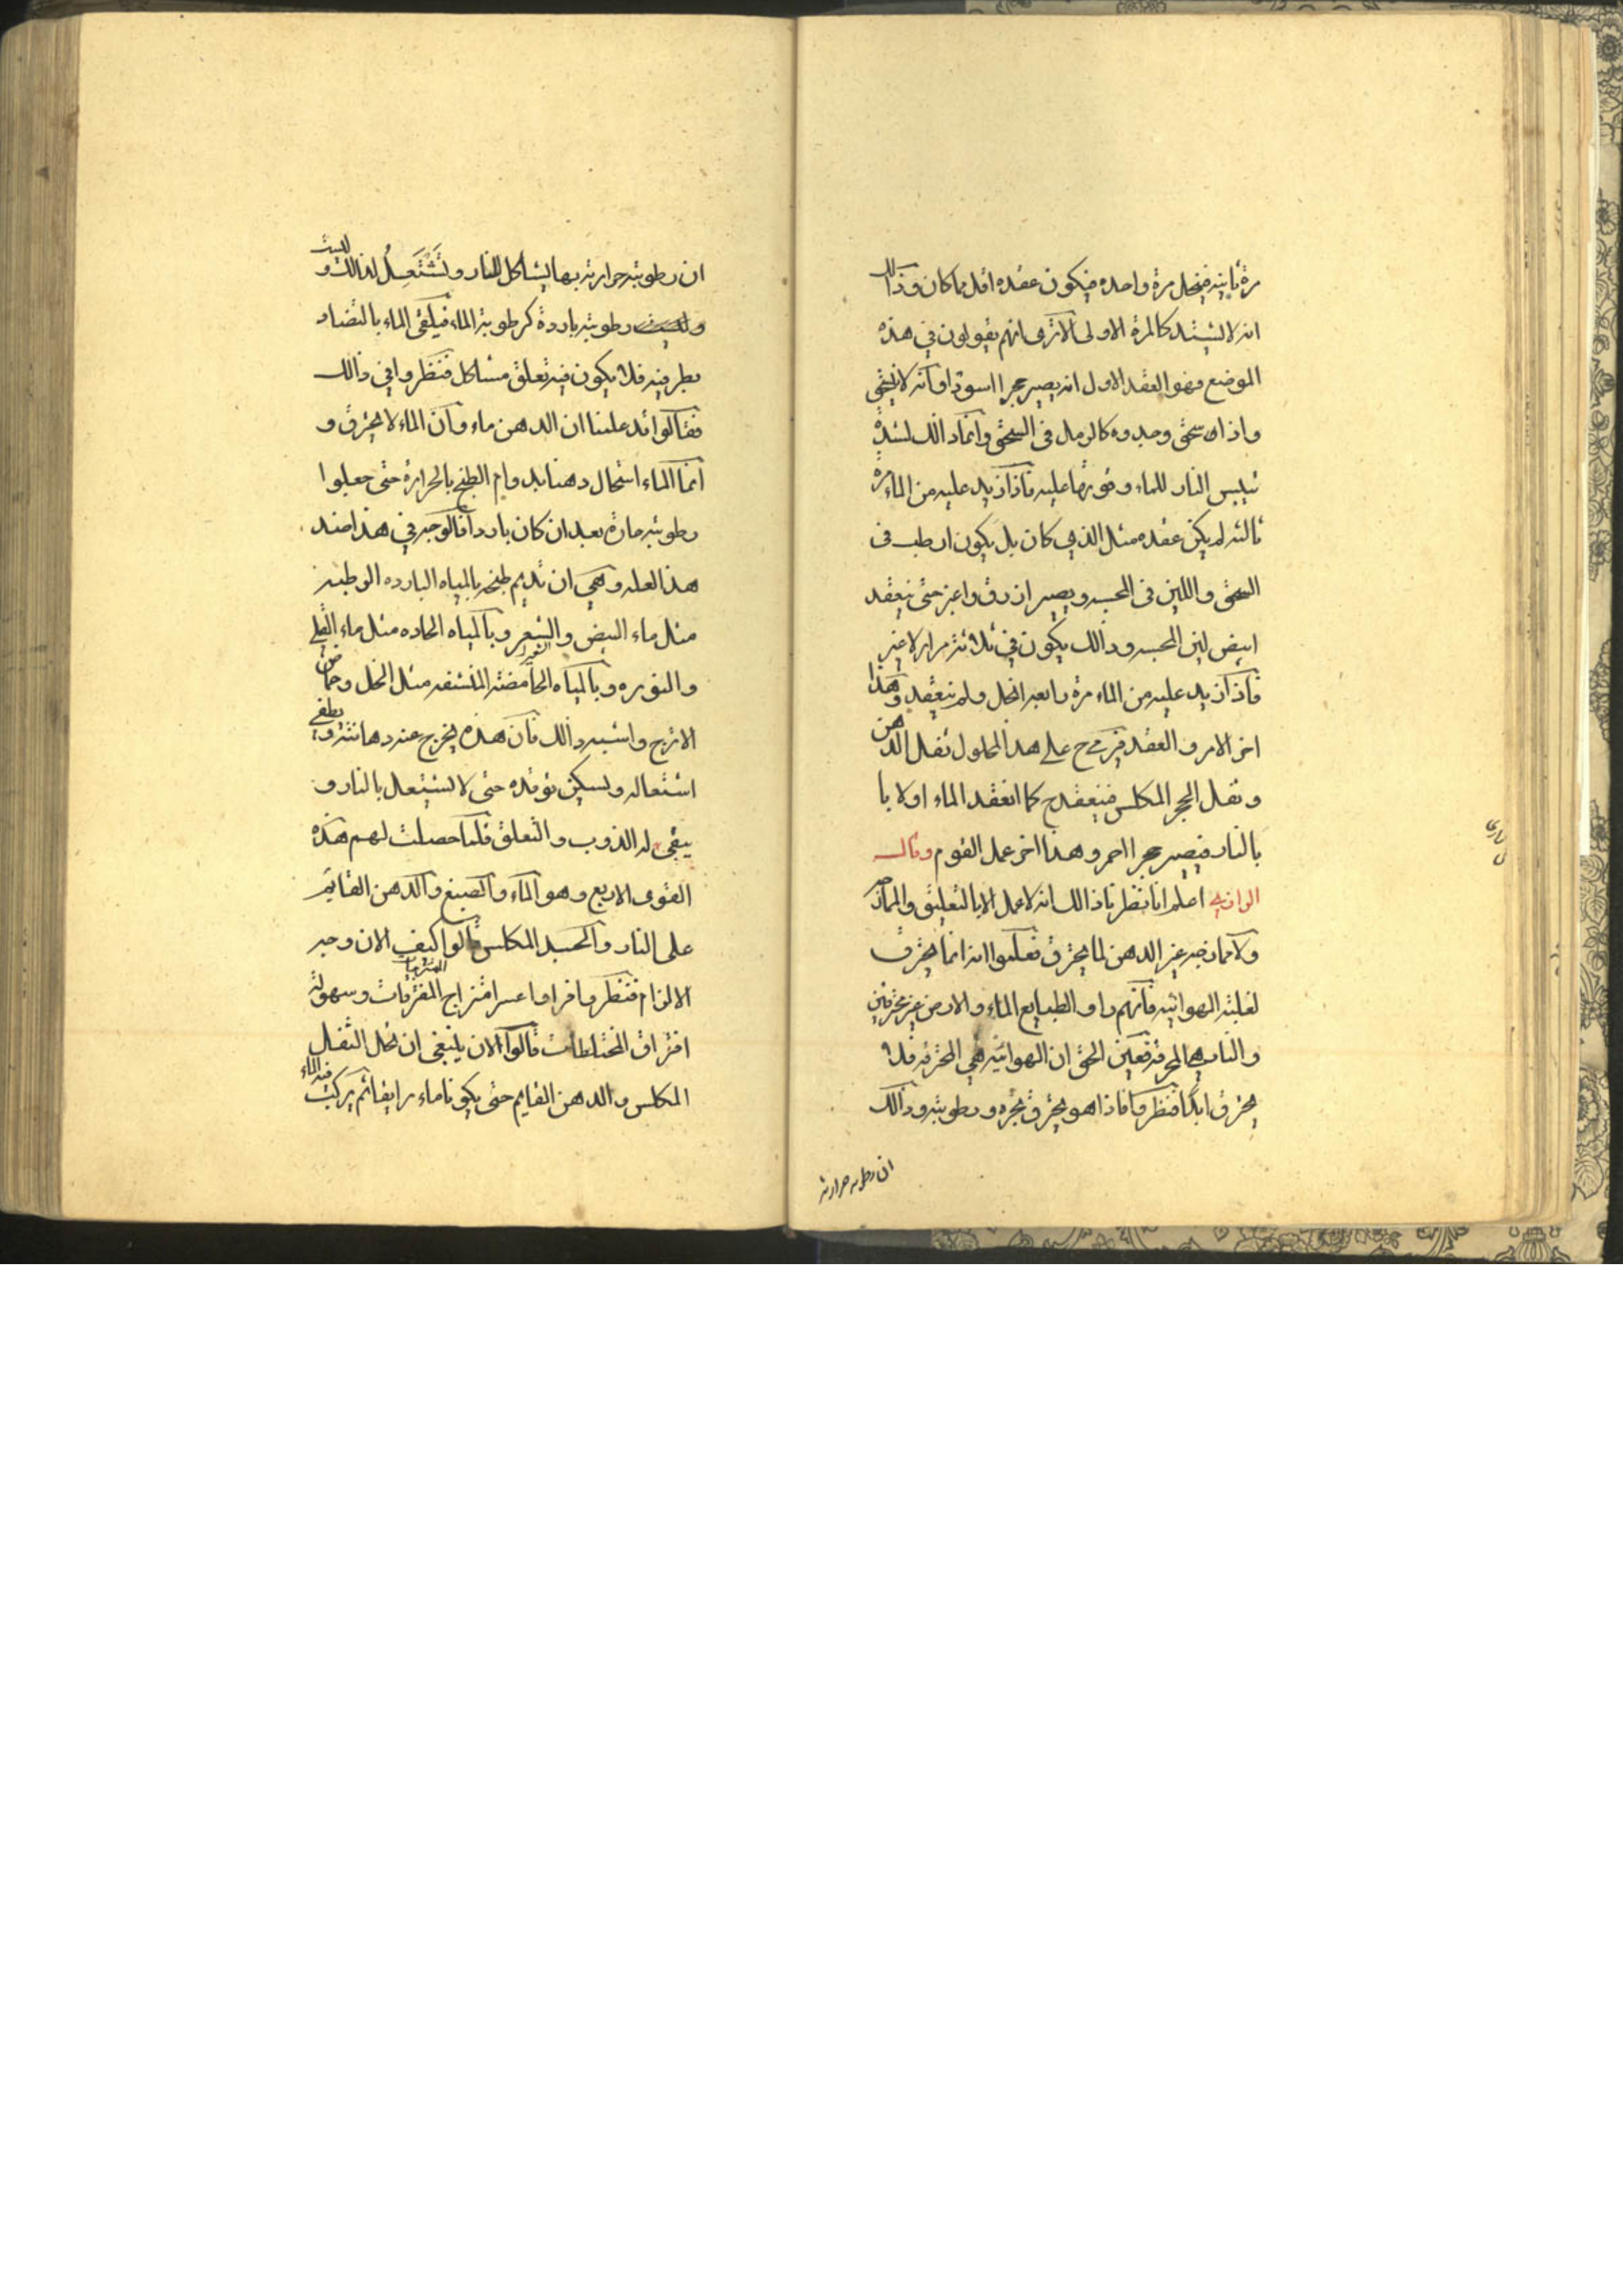 مرة ثانيه فينحل مرة واحده فيكون عقده اقل مما كان وذالك
انه لا يشتد كالمرة الاولى الا ترى انهم يقولون في هذه
الموضع وهو العقد الاول انه يصير حجرا اسودا وانه لا ينسحق
واذا سحق وجدوه كالرمل في السحق وانما ذالك لشدة
تيبيس النار للماء وقوتها عليه فاذا زيد عليه من الماء مرة
ثالثه لم يكن عقده مثل الذي كان بل يكون ارطب في
السحق واللين في المجسه ويصير ازرق واغبر حتى ينعقد
ابيض لين المجسه وذالك يكون في ثلاثة مرار لا غير
فاذا زيد عليه من الماء مرة رابعه انحل ولم ينعقد وهذا
اخر الامر والعقد فيرى ح على هذا المحلول ثفل الدهن
وثفل الحجر المكلس فينعقد ح كما انعقد الماء اولا با
بالنار فيصير حجرا احمر وهذا اخر عمل القوم وقالـــ
الرازي اعلم انا نظرنا ذالك انه لا عمل الا بالتعليق والممازجه
ولا ممازجه غير الدهن لما يحترق فعلموا انه انما يحترق
لغلبة الهوائيه فانهم راو الطبايع الماء والارض غير محترقين
والنار هي المحرقه فعين الحق ان الهوائيه هي المحترقه فلا
يحترق ابدا فنظروا فاذا هو يحترق بحره ورطوبته وذالك
ان رطوبته حرارته
ان رطوبته حرارته بها يشاكل للنار وتشتعل لذالك وليست
رطوبته باردة كرطوبة الماء فيلقى الماء بالتضاد
بطرفيه فلا يكون فيه تعلق مشاكل فنظروا في ذالك
فقالوا قد علمنا ان الدهن ماء وان الماء لا يحترق و
انما الماء استحال دهنا بدوام الطبخ بالحرارة حتى جعلوا
رطوبته حارة بعد ان كان باردا قالوا وجه في هذا ضد
هذا العله وهي ان نديم طبخه بالمياه البارده الرطبه
مثل ماء البيض والشعر وبالمياه الحاده مثل ماء القلي
والنوره وبالمياه الحامضة المنشفه مثل الخل وحماض
الاترج واشبه ذالك فان هذه يخرج عنه دهانته ويطفي
اشتعاله ويسكن توقده حتى لا يشتعل بالنار و
يبقى له الذوب والتعلق فلما حصلت لهم هذه
القوى الاربع وهو الماء والصبغ والدهن القايم
على النار والجسد المكلس قالوا كيف الان وجه
الالزام فنظروا فراوا عسر امتزاج المفترقات وسهولة
افتراق المختلطات قالوا الان ينبغي ان نحل الثفل
المكلس والدهن القايم حتى يكونا ماء رايقا ثم يركب فيه الماء